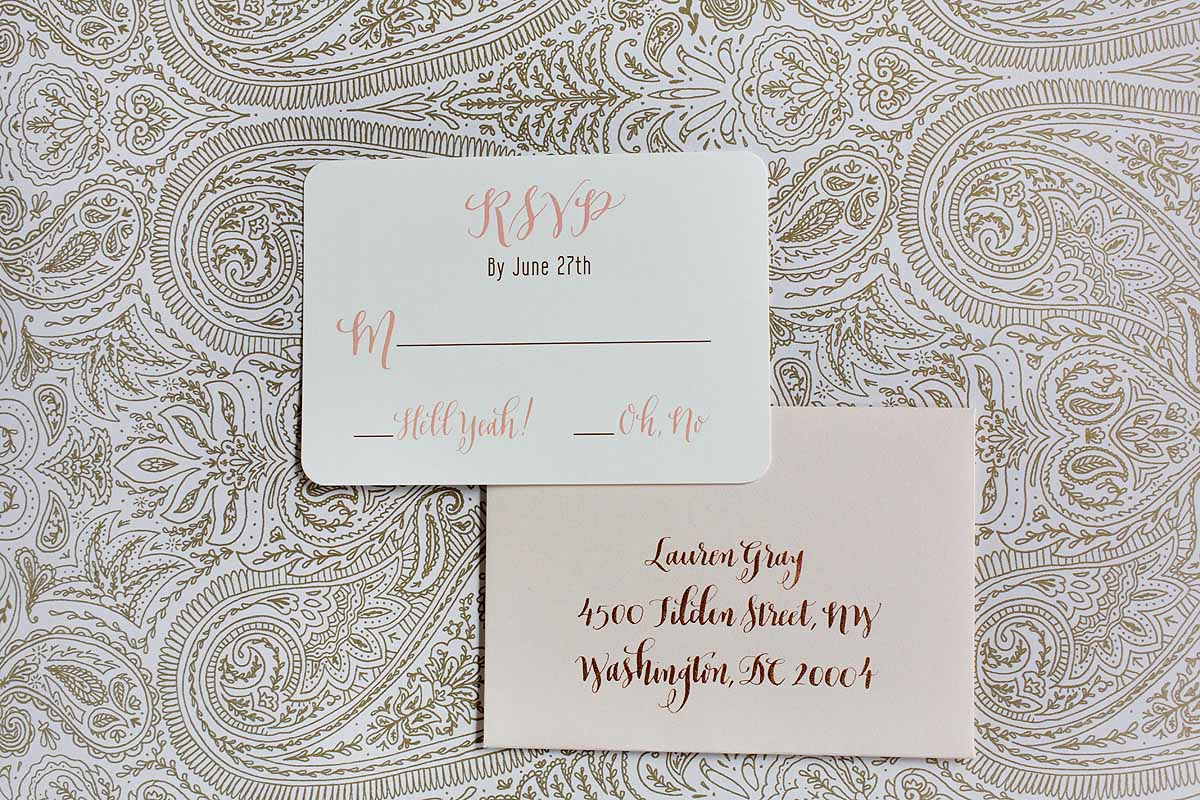 RSVP
By June 27th
M
Hell Yeah! Oh, No
Lauren Gray
4500 Tilden Street, NW
Washington, DC 20004